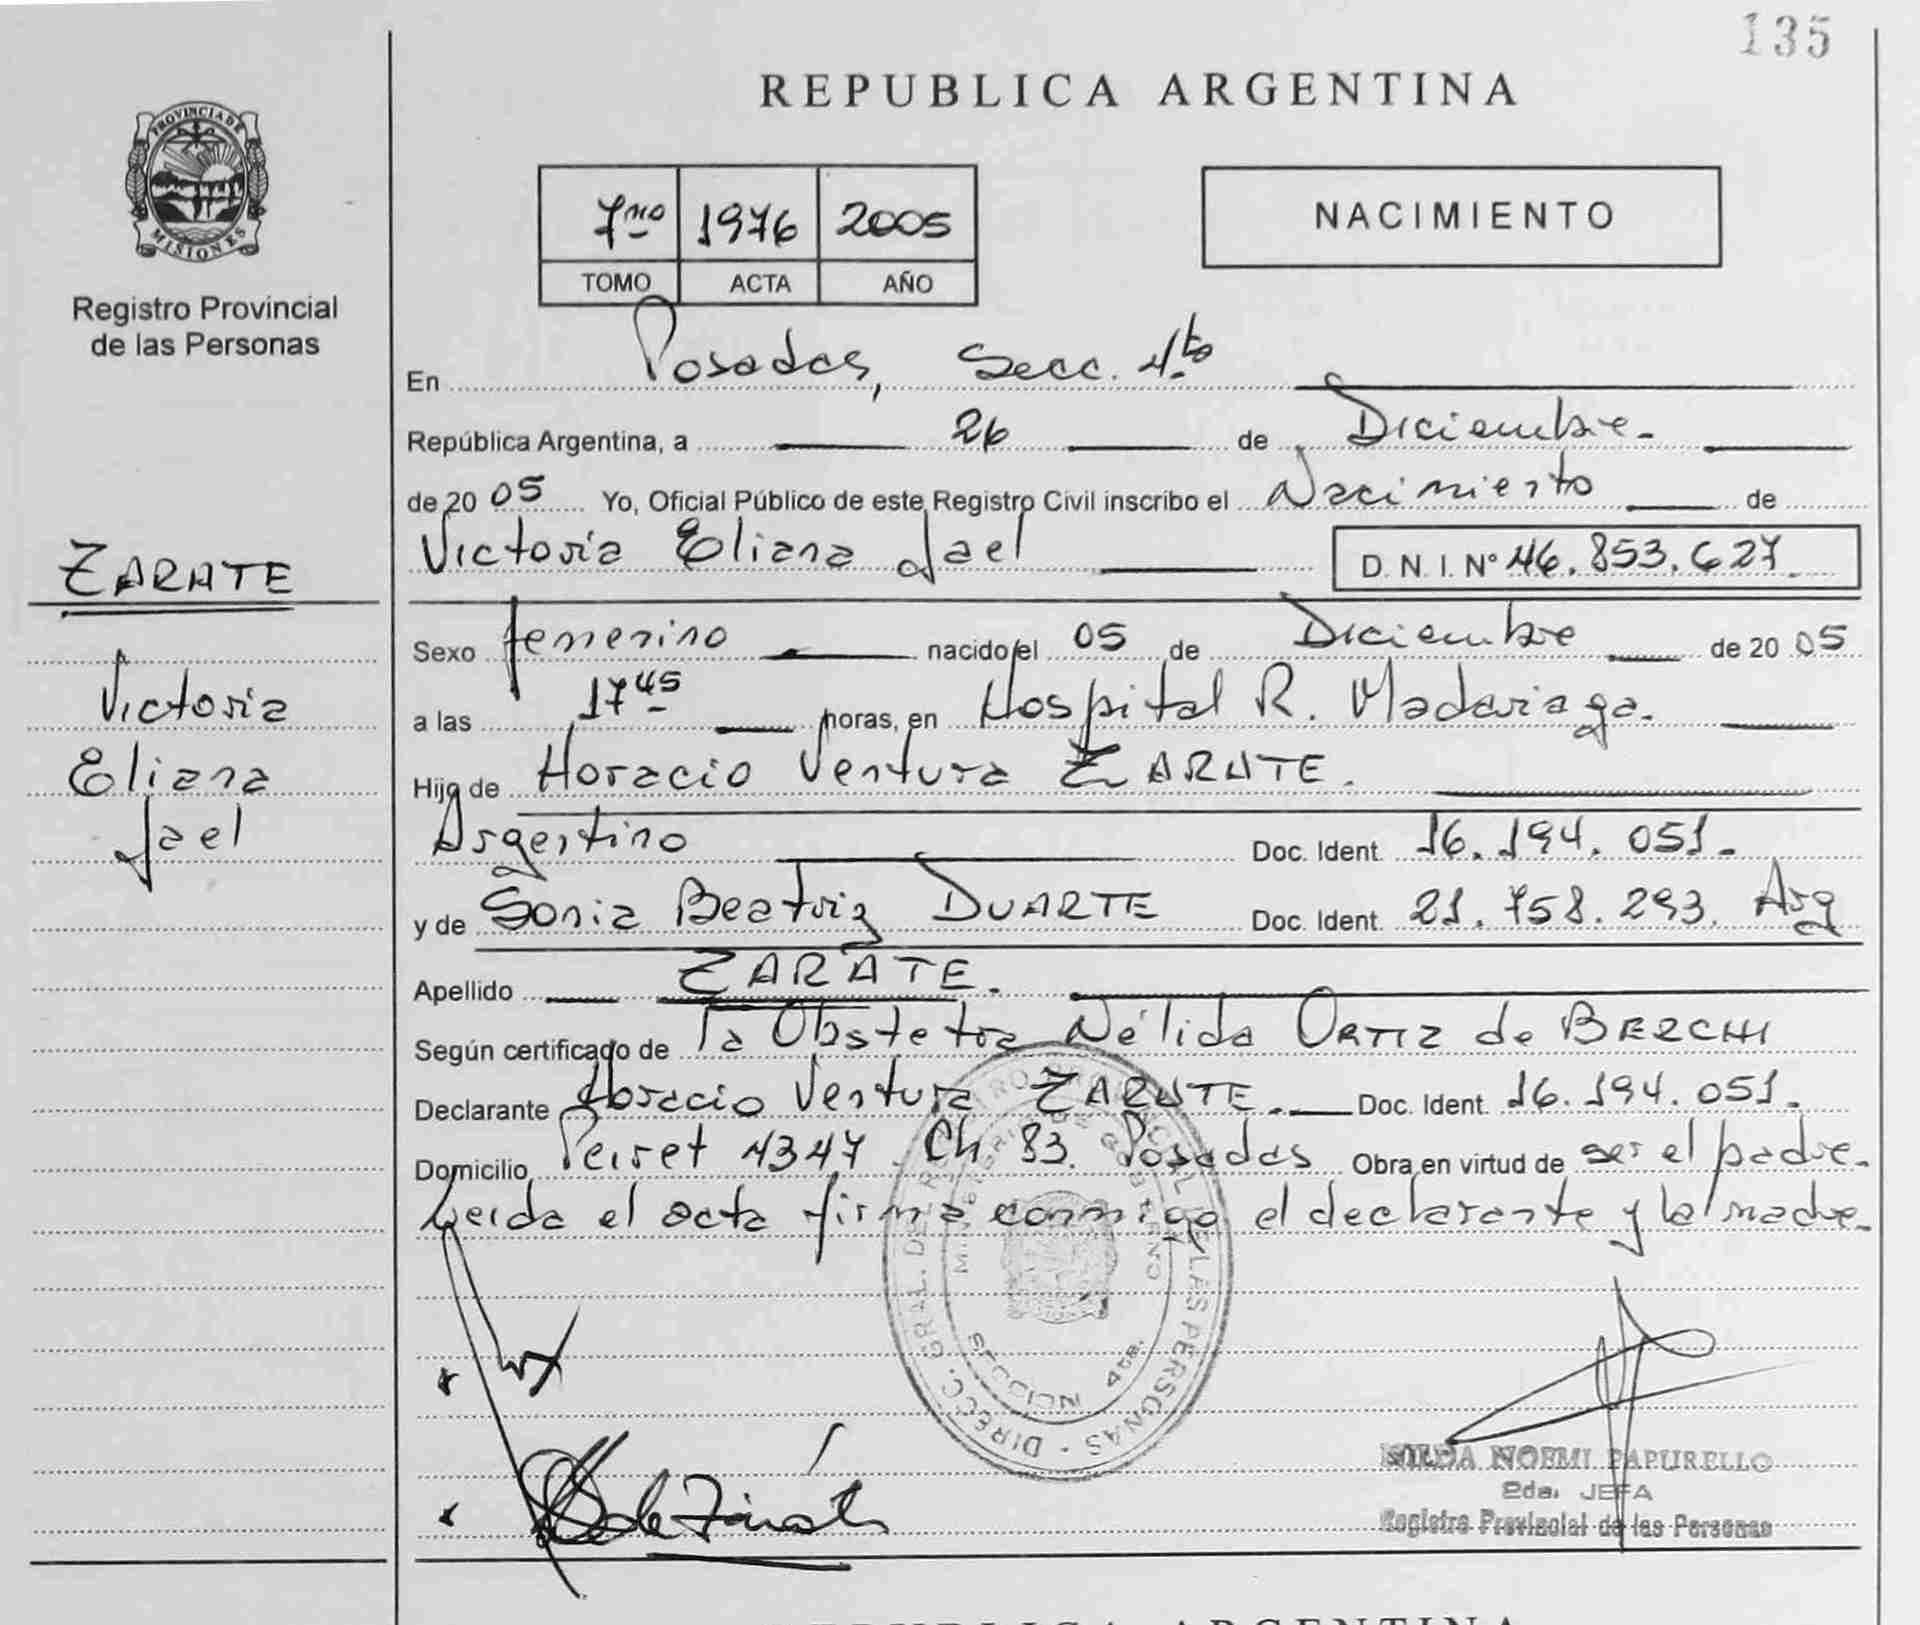 135
REPUBLICA ARGENTINA
PROVINCIA DE
MISIONES
Registro Provincial
de las Personas
7mo 1976 2005
TOMO ACTA AÑO
NACIMIENTO
En Posadas, Secc. 4ta
República Argentina, a 26 de Diciembre.
de 20 05 Yo, Oficial Público de este Registro Civil inscribo el Nacimiento de
Victoria Eliana Jael D.N.I. Nº 46.853.627.
ZARATE
Victoria
Eliana
Jael
Sexo femenino nacido el 05 de Diciembre de 20 05
a las 17 45 horas, en Hospital R. Madariaga.
Hijo de Horacio Ventura ZARATE.
Argentino Doc. Ident. 16.194.051.
y de Sonia Beatriz DUARTE Doc. Ident. 21.758.293. Arg
Apellido ZARATE.
Según certificado de la Obstetra Nélida ORTIZ de BERCHI
Declarante Horacio Ventura ZARATE. Doc. Ident. 16.194.051.
Domicilio Peiret 4347 Ch 83. Posadas Obra en virtud de ser el padre.
Leida el acta firma conmigo el declarante y la madre.
DIRECC. GRAL. DEL REGISTRO PROVINCIAL DE LAS PERSONAS
MINISTERIO DE GOBIERNO
SECCION 4ta.
NOEMI PAPURELLO
2da. JEFA
Registro Provincial de las Personas
REPUBLICA ARGENTINA